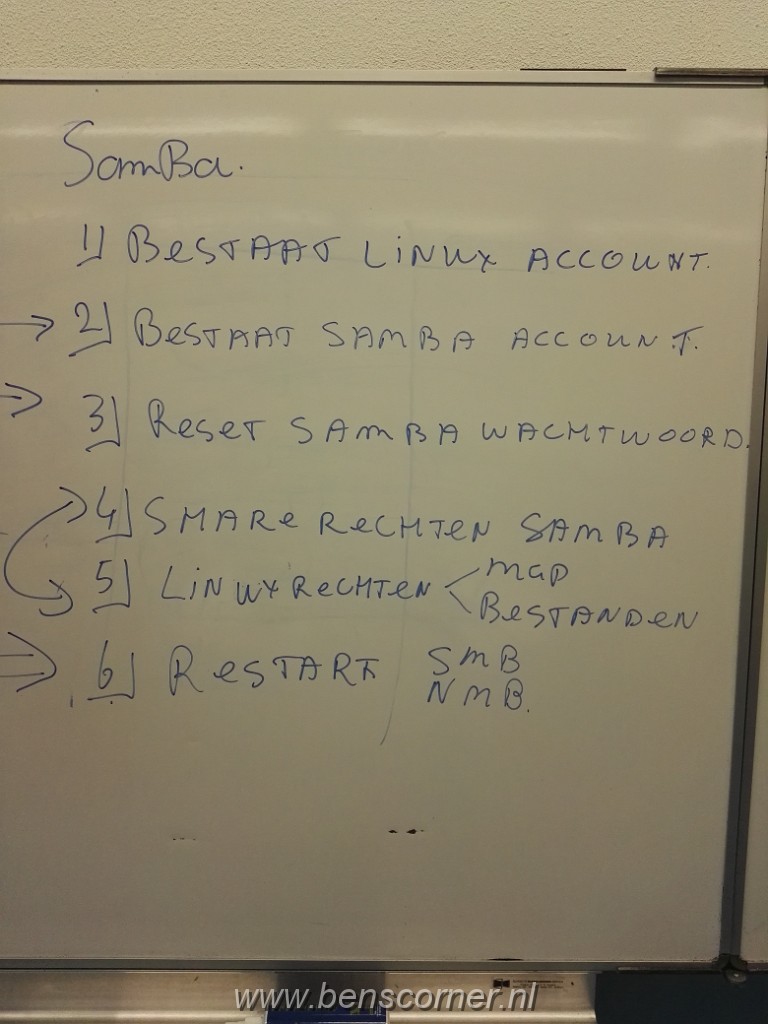 SamBa.
1) BESTAAT LINUX ACCOUNT.
2) BESTAAT SAMBA ACCOUNT.
3) RESET SAMBA WACHTWOORD.
4) SHARE RECHTEN SAMBA
5) LINUX RECHTEN < MAP
BESTANDEN
6) RESTART SMB
NMB.
www.benscorner.nl